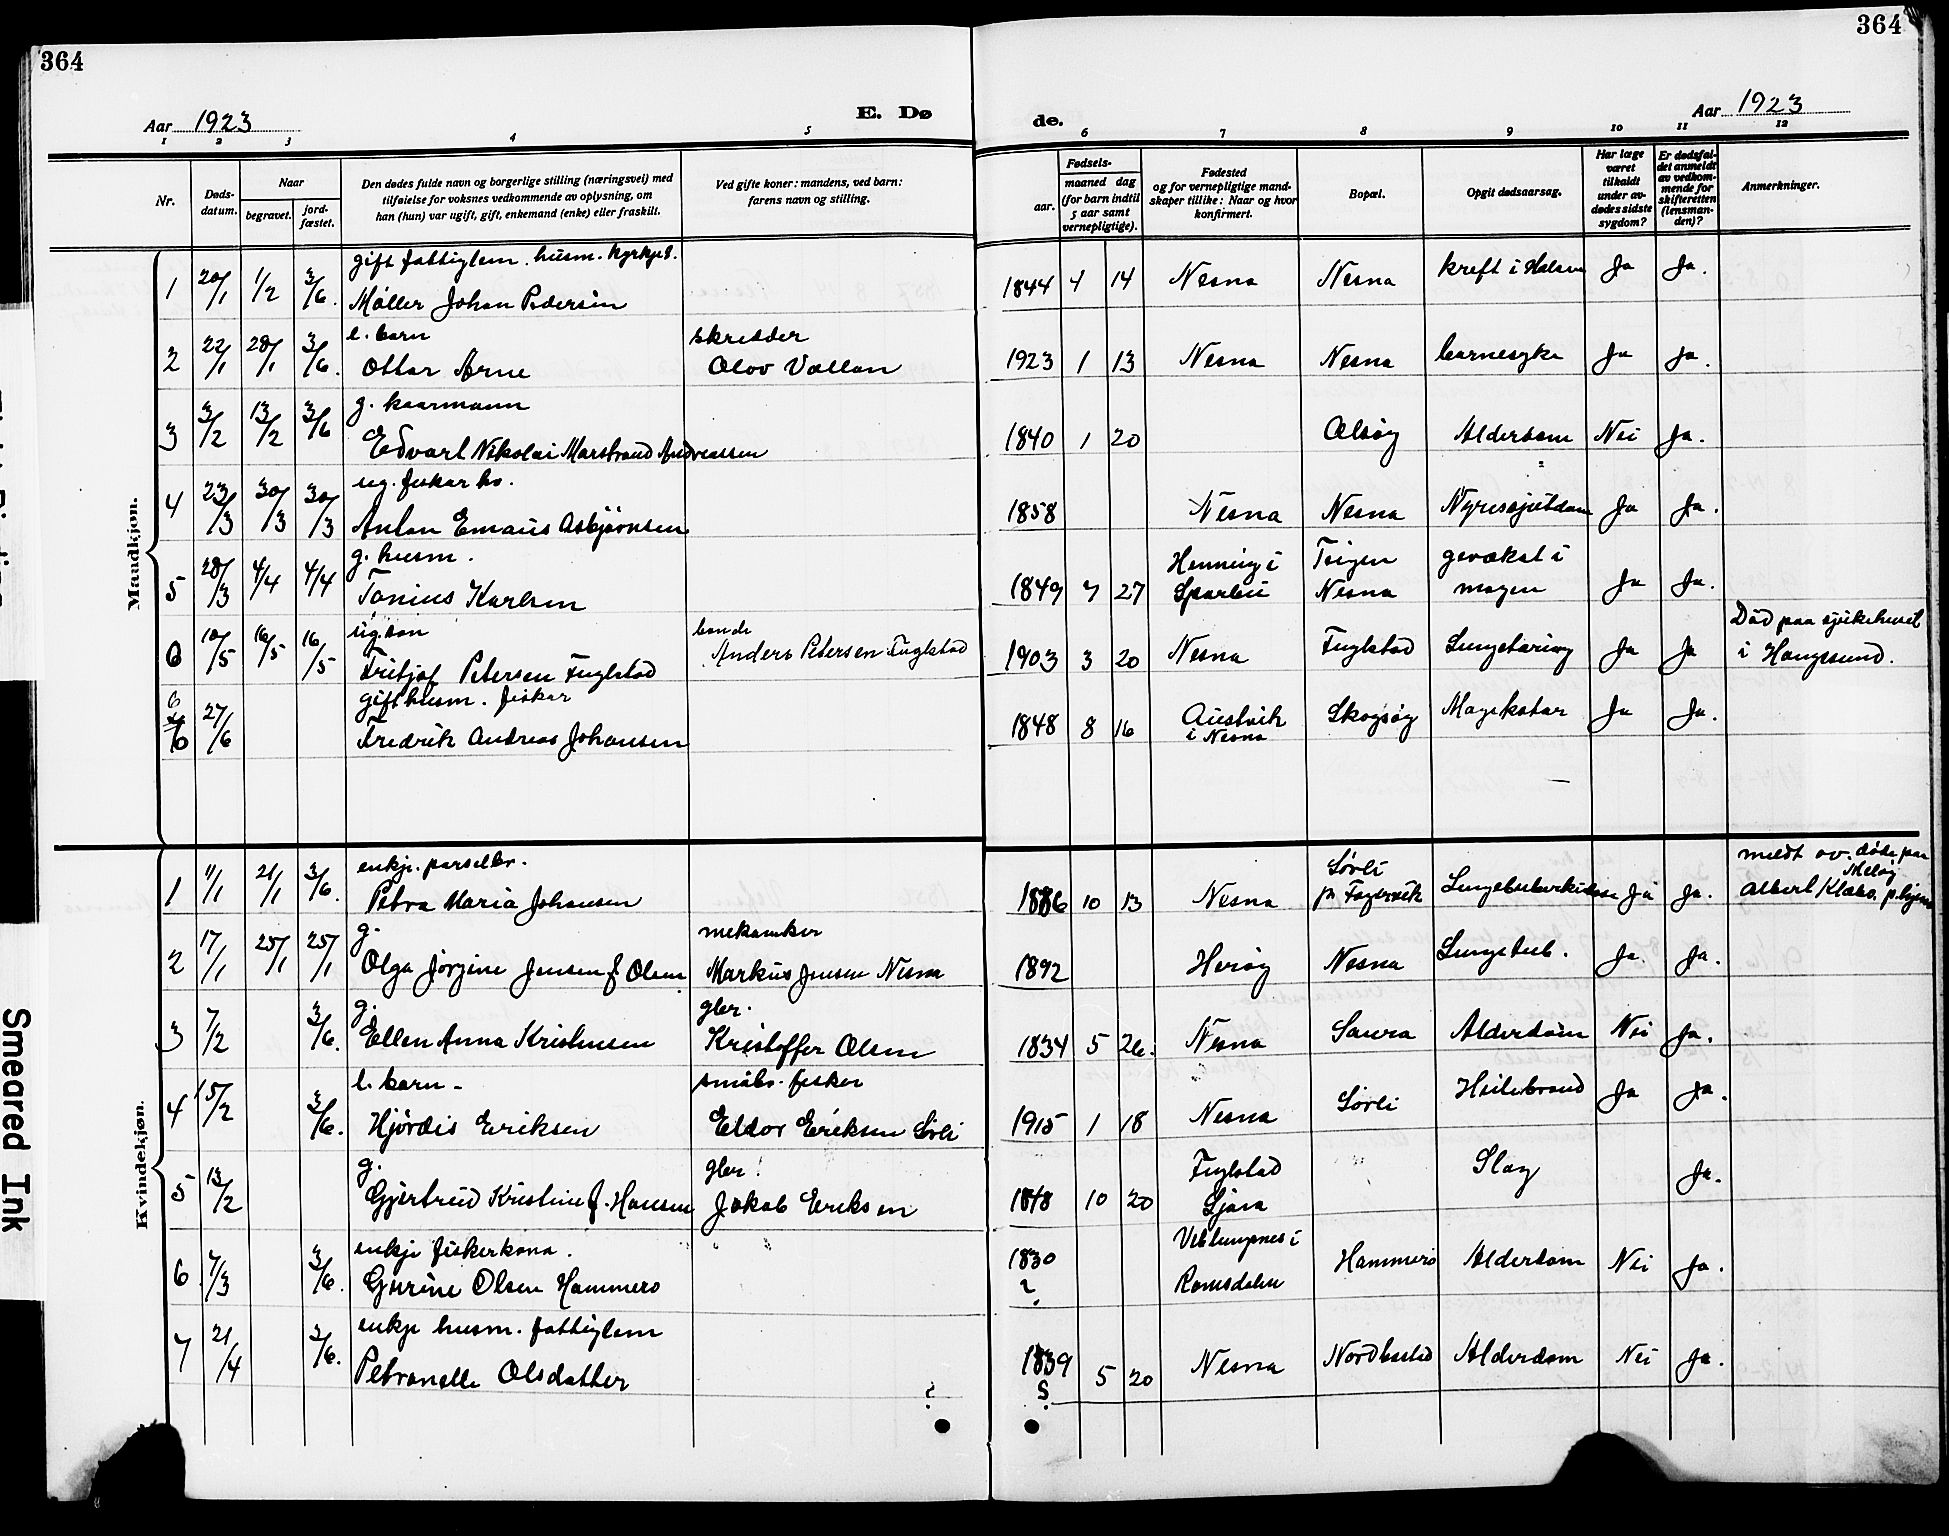 364
364
Aar 1923
E. Dø
de.
Aar 1923
1 2 3 4 5 6 7 8 9 10 11 12
Nr.
Døds-
datum.
Naar
begravet.
jord-
fæstet.
Den dødes fulde navn og borgerlige stilling (næringsvei) med
tilføielse for voksnes vedkommende av oplysning, om
han (hun) var ugift, gift, enkemand (enke) eller fraskilt.
Ved gifte koner: mandens, ved barn:
farens navn og stilling.
Fødsels-
aar.
maaned dag
(for barn indtil
5 aar samt
vernepligtige).
Fødested
og for vernepligtige mand-
skaper tillike: Naar og hvor
konfirmert.
Bopæl.
Opgit dødsaarsag.
Har læge
været
tilkaldt
under av-
dødes sidste
sygdom?
Er dødsfal-
det anmeldt
av vedkom-
mende for
skifteretten
(lensman-
den)?
Anmerkninger.
Mandkjøn.
gift fattiglem. husm.
1 20/1 1/2 3/6. Møller Johan Pedersen 1844 4 14 Nesna Nesna kreft i Halsen Ja Ja.
e. barn skredder
2 22/1 28/1 3/6. Ottar Arne Olov Vallan 1923 1 13 Nesna Nesna barnesyke Ja Ja.
g. kaarmann
3 3/2 13/2 3/6 Edvart Nikolai Marstrand Andreassen 1840 1 20 Alsøy Alderdom Nei Ja.
ug. fiskar
4 23/3 30/3 30/3 Anton Emaus Asbjørnsen 1858 Nesna Nesna Ja Ja.
g. husm.
5 28/3 4/4 4/4 Tonius Karlsen 1849 7 27 Henning i Sparbu Nesna gevækst i magen Ja Ja.
ug. søn bonde
6 10/5 16/5 16/5 Fritjof Petersen Fuglstad Anders Petersen Fuglstad 1903 3 20 Nesna Fuglstad Lungetæring Ja Ja Død paa sjukehuset
i Haugesund.
gift husm. fiskar
6 27/6 Fredrik Andreas Johansen 1848 8 16 Austvik i Nesna Skogsøy Magekatar Ja Ja.
Kvindekjøn.
enkje. parselbr.
1 11/1 21/1 3/6. Petra Maria Johansen 1886 10 13 Nesna Sørli Ja Ja. meldt av
Albert
g. mekaniker
2 17/1 25/1 25/1 Olga Jørgine Jensen f Olsen Markus Jensen Nesna 1892 Herøy Nesna Lungetub. Ja Ja.
g. gbr.
3 7/2 3/6. Ellen Anna Kristensen Kristoffer Olsen 1834 5 26. Nesna Saura Alderdom Nei Ja.
e. barn - småbr. fisker
4 15/2 3/6. Hjørdis Eriksen Eldor Eriksen Sørli 1915 1 18 Nesna Sørli Ja Ja.
g. gbr.
5 13/2 Gjertrud Kristine f. Hansen Jakob Eriksen 1848 10 20 Fuglstad Sjona Slag Ja.
enkje fiskerkona.
6 7/3 3/6. Gurine Olsen Hammerø 1830 ? Veblungsnes i Romsdalen Hammerø Alderdom Nei Ja.
enkje husm. fattiglem
7 21/4 3/6. Petranelle Olsdatter ? 1839 5 20 Nesna Nordbostad Alderdom Nei Ja.
Smeared Ink